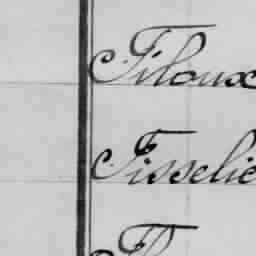 Filoux
Fisselie